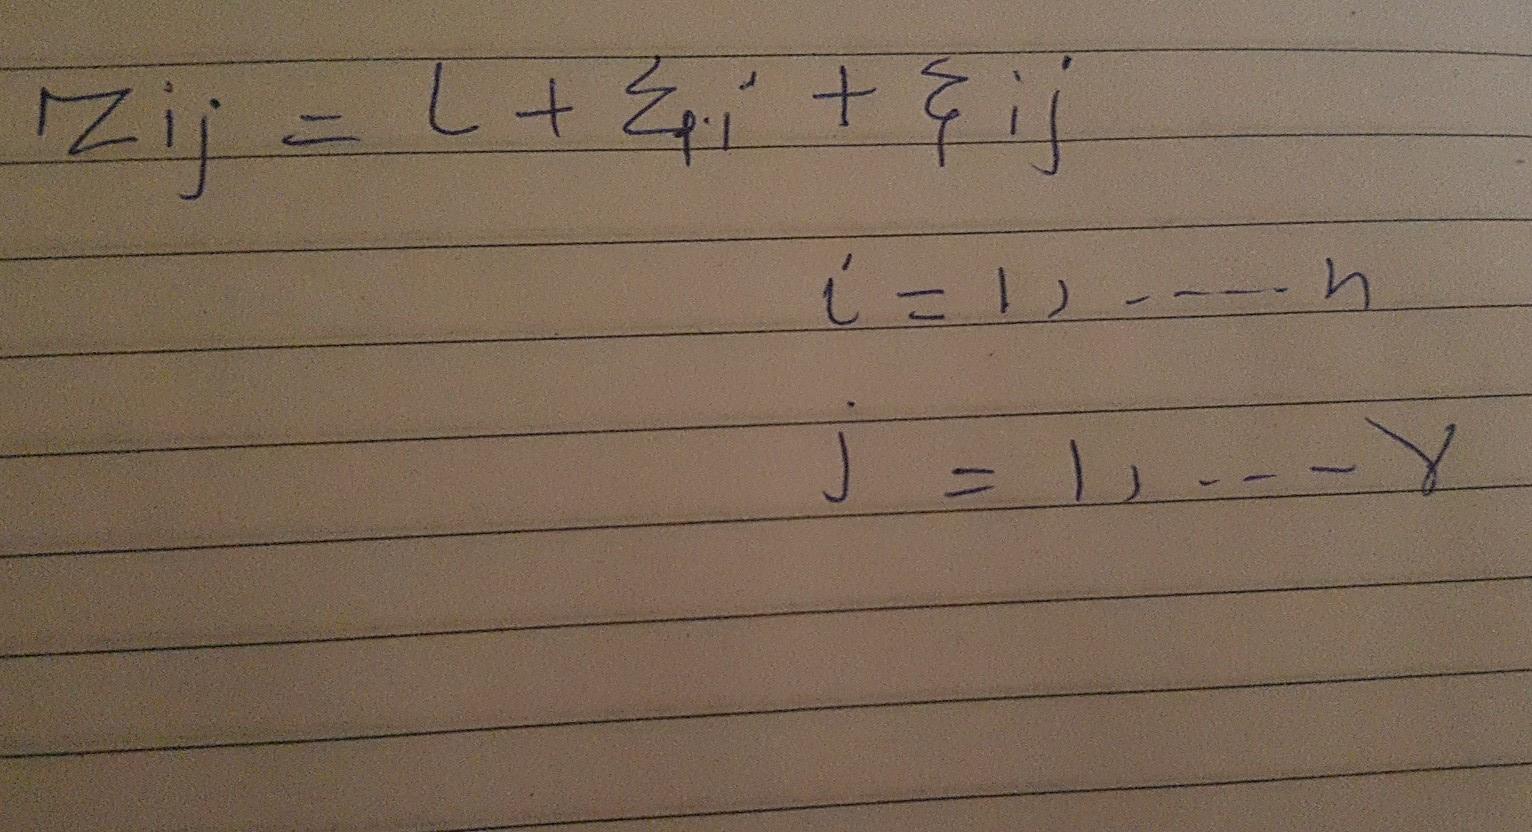 Zij = L + ξp.i + ξij
i = 1, ..... n
j = 1, ... γ